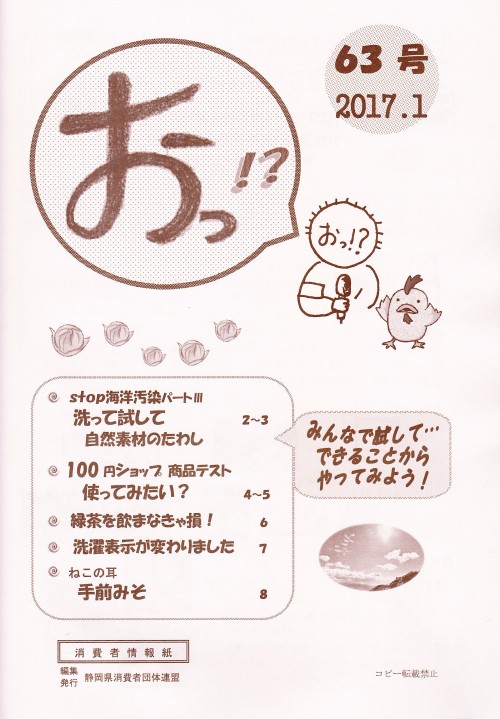 63 号
2017.1
おっ!?
おっ!?
stop海洋汚染パートⅢ
洗って試して 2～3
自然素材のたわし
100円ショップ 商品テスト
使ってみたい? 4～5
緑茶を飲まなきゃ損! 6
洗濯表示が変わりました 7
ねこの耳
手前みそ 8
みんなで試して…
できることから
やってみよう!
消費者情報紙
編集
発行 静岡県消費者団体連盟
コピー転載禁止